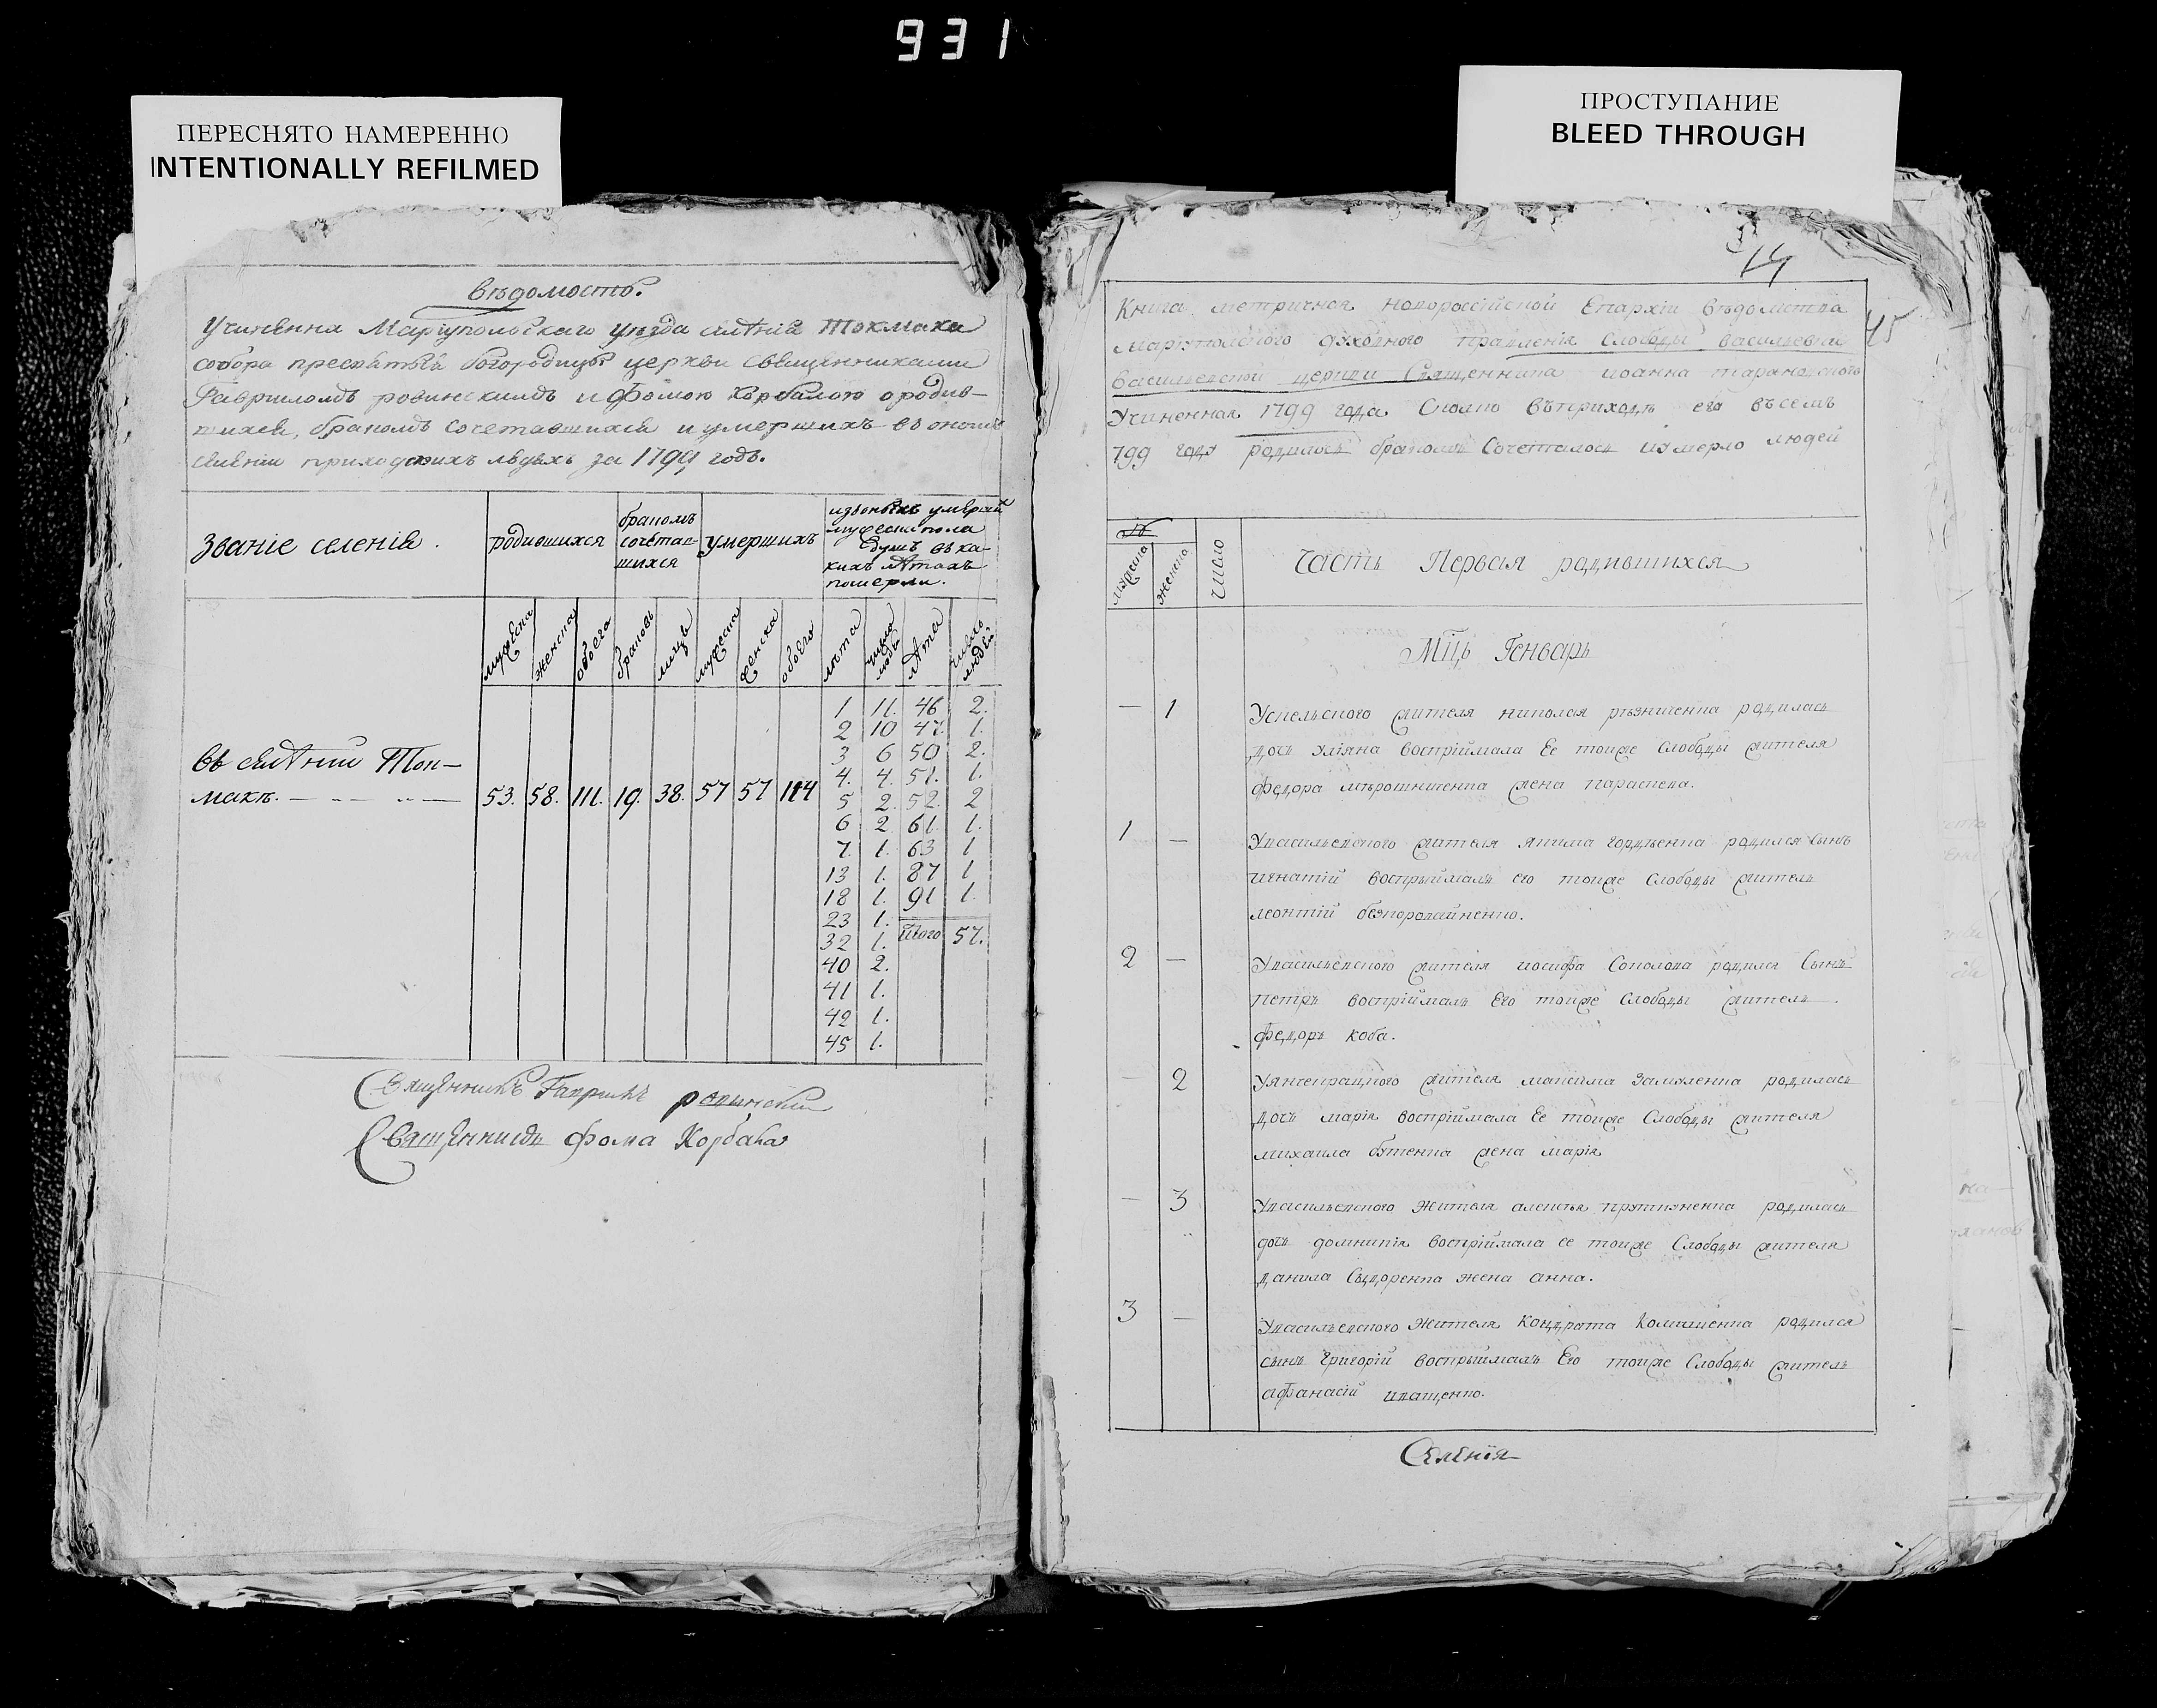 931
ПЕРЕСНЯТО НАМЕРЕННО
INTENTIONALLY REFILMED
ПРОСТУПАНИЕ
BLEED THROUGH
вѣдомость.
Учиненна Маріупольскаго уѣзда селенія Токмака
собора пресвятыя богородицы церкви священниками
Гавриломъ ровинскимъ и Фомою Корбалою о родив-
шихся, бракомъ сочетавшихся и умершихъ въ ономъ
селеніи приходскихъ людехъ за 1799 годъ.
Званіе селенія.
родившихся
бракомъ
сочетав-
шихся
умершихъ
изъ оныхъ умерши
мужеска пола
душъ въ ка-
кихъ лѣтахъ
померли.
мужеска женска обоего браковъ лицъ мужеска женска обоего лѣта число людей лѣта число людей
въ селѣнии Ток-
макѣ. 53. 58. 111. 19. 38. 57 57 114
1 11. 46 2.
2 10 47. 1.
3 6 50 2.
4. 4. 51. 1.
5 2. 52. 2
6 2 61. 1.
7. 1. 63 1
13 1. 87 1
18 1. 91 1.
23 1.
32 1. Итого 57.
40 2.
41 1.
42 1.
45 1.
Священникъ Гавріилъ ровинскій
Священникъ фома Корбала
14
45
Книга метричная новороссійской Епархіи вѣдомства
маріупольского духовного правленія Слободы васильевки
васильевской церкви Священника иоанна тарановского
Учиненная 1799 года Сколко въ приходѣ его въ семъ
799 году родилось бракомъ Сочеталось и умерло людей
мужеска
женска
число
Часть Первая родившихся
Мцъ Генварь
— 1 Успельского жителя николая рѣзниченка родилась
дочь улiяна воспріймала Ее тоиже Слободы жителя
федора мѣрошниченка жена параскева.
1 — Увасильевского жителя якима гордѣенка родился сынъ
игнатій воспрыймалъ его тоиже Слободы жителъ
леонтій безпоровайненко.
2 — Увасильевского жителя иосифа Соколова родился Сынъ
петръ воспріймалъ Его тоиже Слободы жителъ
федоръ коба.
— 2 Уянчепрацкого жителя максима замуленка родилась
дочь марія воспріймала Ее тоиже Слободы жителя
михаила бутенка жена марія
— 3 Увасильевского жителя алексѣя прутиченка родилась
дочь домникія воспріймала ее тоиже Слободы жителя
данила Сыдоренка жена анна.
3 — Увасильевского жителя Кондрата Комишенка родился
сынъ григорій воспрыймалъ Его тоиже Слободы жителъ
афанасій иващенко.
Селенія